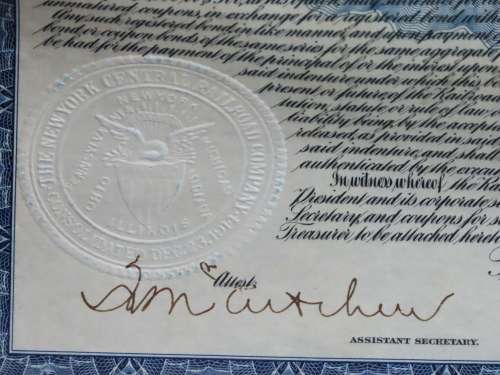 unmatured coupons, in exchange for a registered bond with
Any such registered bond, in like manner, and upon payment
bond or coupon bonds of the same series for the same aggregat
be had for the payment of the principal of or the interest upon
said indenture under which this bo
present or future, of the Railroad
tution, statute or rule of law, o
liability being, by the accep
released, as provided in said
said indenture, and shall
authenticated by the execu
In witness whereof, the Ra
President and its corporate s
Secretary, and coupons for s
Treasurer, to be attached hereto
THE NEW YORK CENTRAL RAILROAD COMPANY
CONSOLIDATED DEC. 23, 1914
NEW YORK
PENNSYLVANIA
MICHIGAN
OHIO
INDIANA
ILLINOIS
Attest:
ASSISTANT SECRETARY.